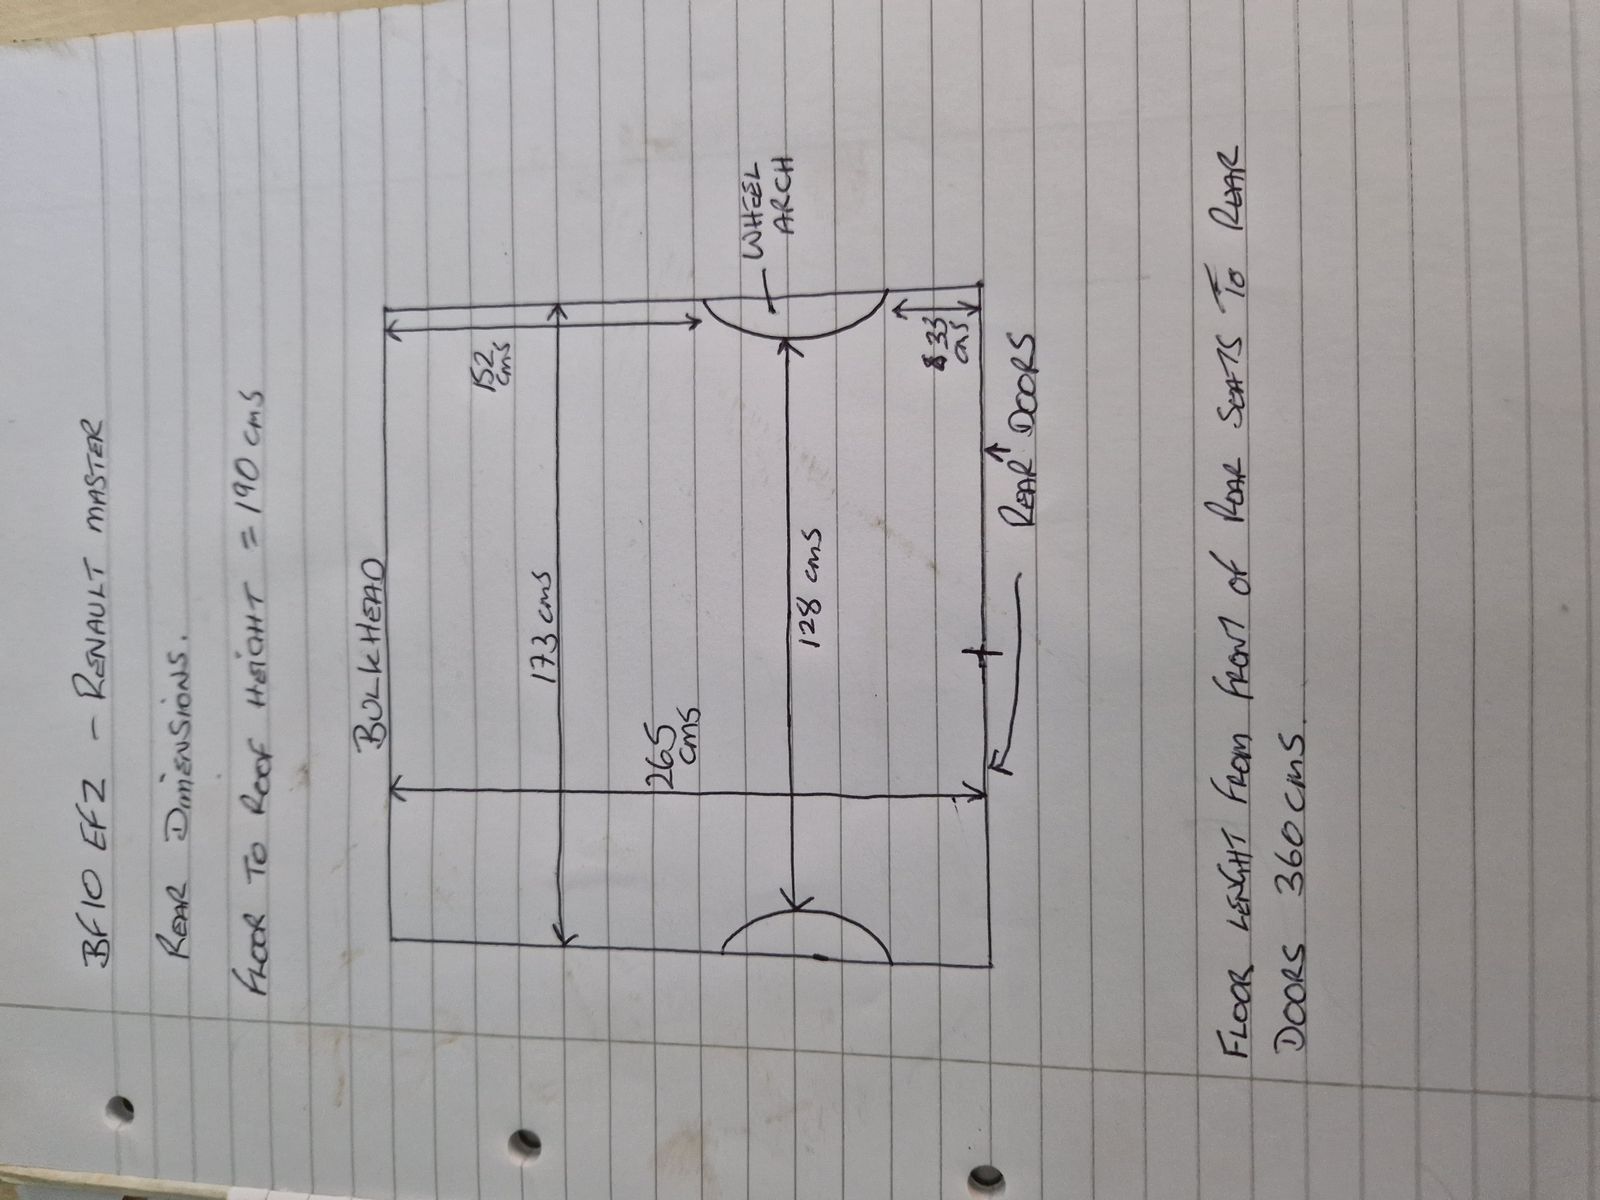 BF10 EFZ - RENAULT MASTER
REAR DIMENSIONS.
FLOOR TO ROOF HEIGHT = 190 cms
BULKHEAD
152
cms
173 cms
265
cms
WHEEL
ARCH
128 cms
33
cms
REAR DOORS
FLOOR LENGHT FROM FRONT OF REAR SEATS TO REAR
DOORS 360 cms.